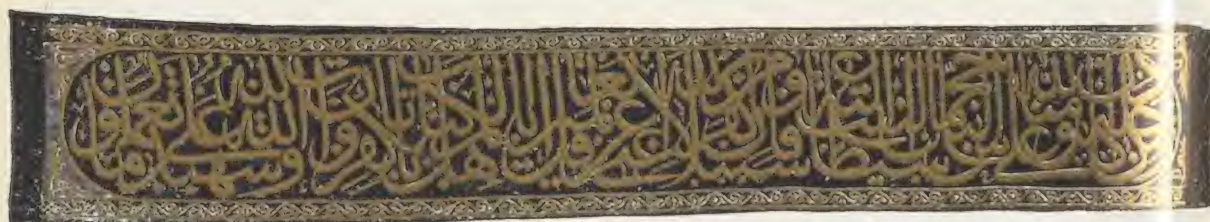 كان آمنا ولله على الناس حج البيت من استطاع إليه سبيلا ومن كفر فإن الله غني عن العالمين قل يا أهل الكتاب لم تكفرون بآيات الله والله شهيد على ما تعملون